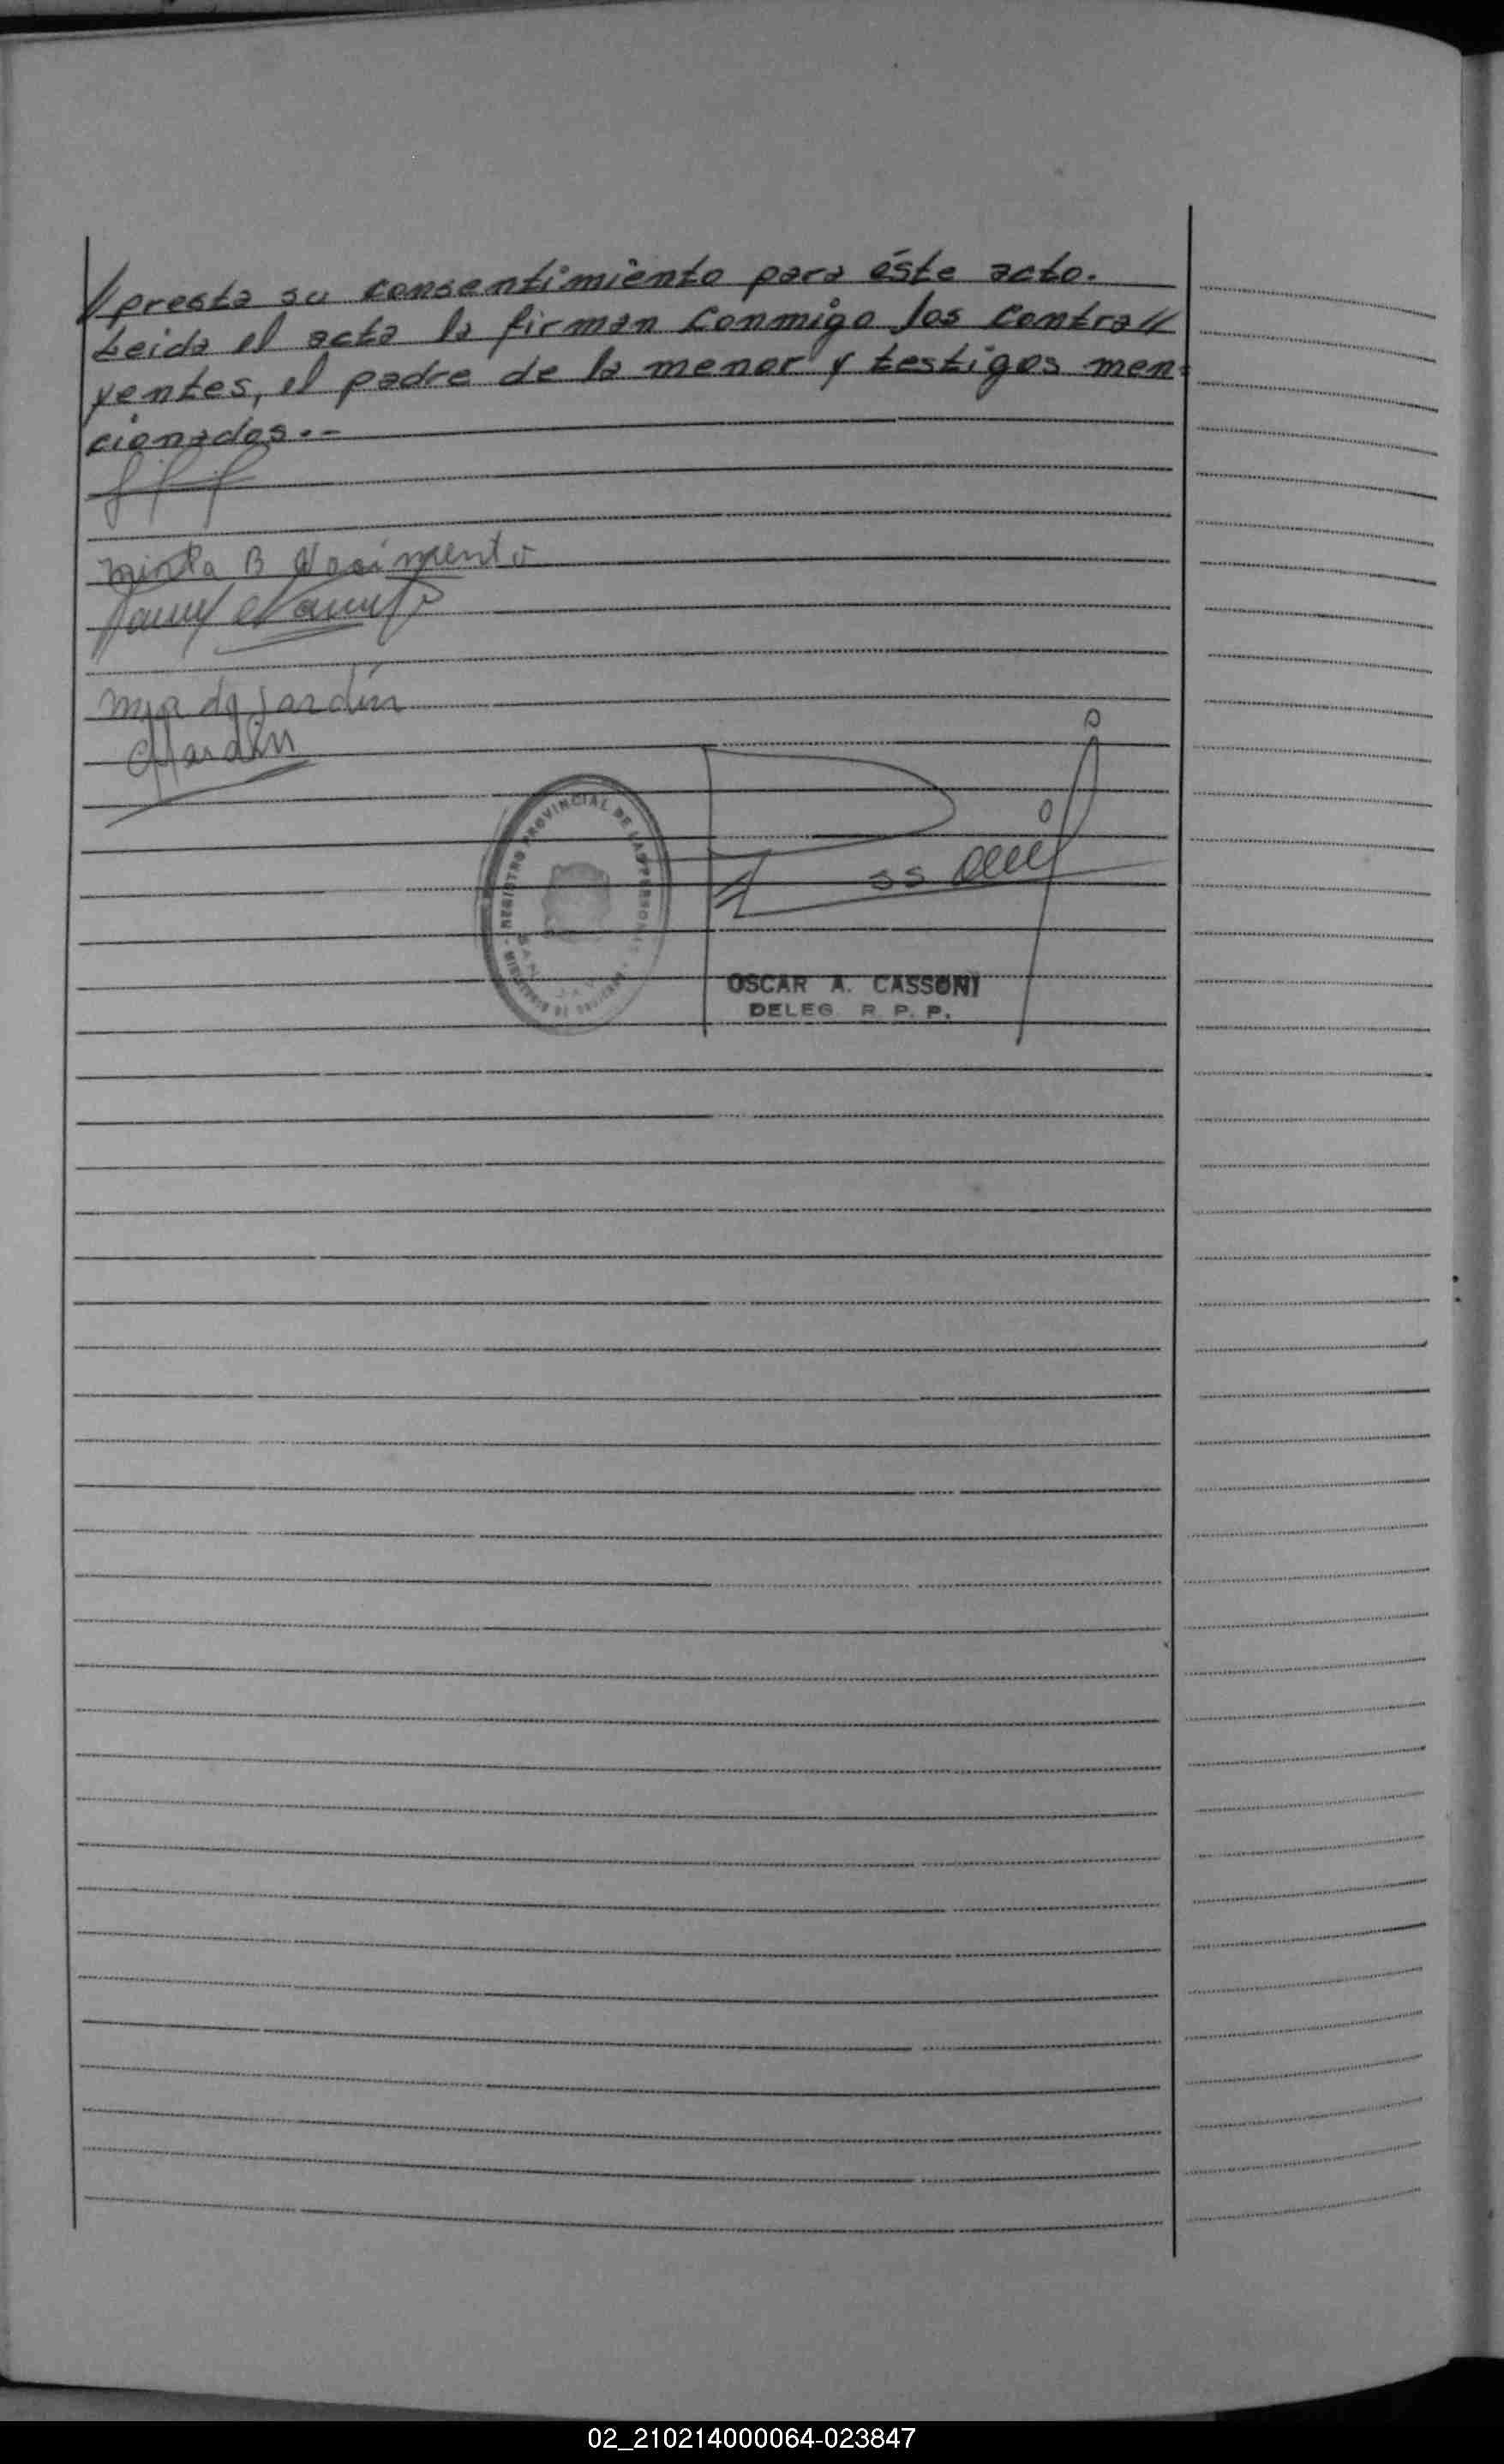 //presta su consentimiento para éste acto.
Leida el acta la firman conmigo los contra//
yentes, el padre de la menor y testigos men-
cionados.-
Mirta B Nacimento
Ma de Jardín
Jardín
REGISTRO PROVINCIAL DE LAS PERSONAS
OSCAR A. CASSONI
DELEG. R. P. P.
02_210214000064-023847